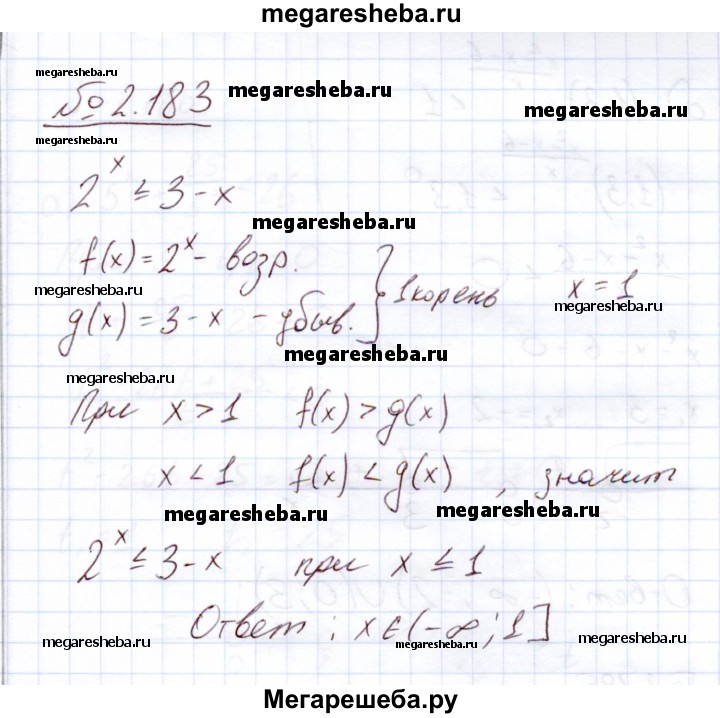 megaresheba.ru
megaresheba.ru
№ 2.183 megaresheba.ru
megaresheba.ru
megaresheba.ru
2^x ≤ 3 - x
megaresheba.ru
f(x) = 2^x - возр.
megaresheba.ru
g(x) = 3 - x - убыв. } 1 корень x = 1
megaresheba.ru
megaresheba.ru
megaresheba.ru
При x > 1 f(x) > g(x)
x < 1 f(x) < g(x) , значит
megaresheba.ru megaresheba.ru
2^x ≤ 3 - x при x ≤ 1
Ответ: x ∈ (-∞; 1]
megaresheba.ru megaresheba.ru megaresheba.ru
Мегарешеба.ру